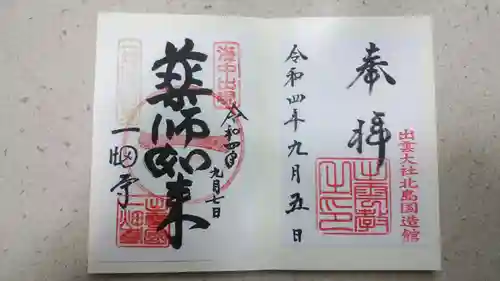 奉拝
出雲大社北島国造館
令和四年九月五日
海中出現
薬師如来
令和四年
九月七日
一畑寺